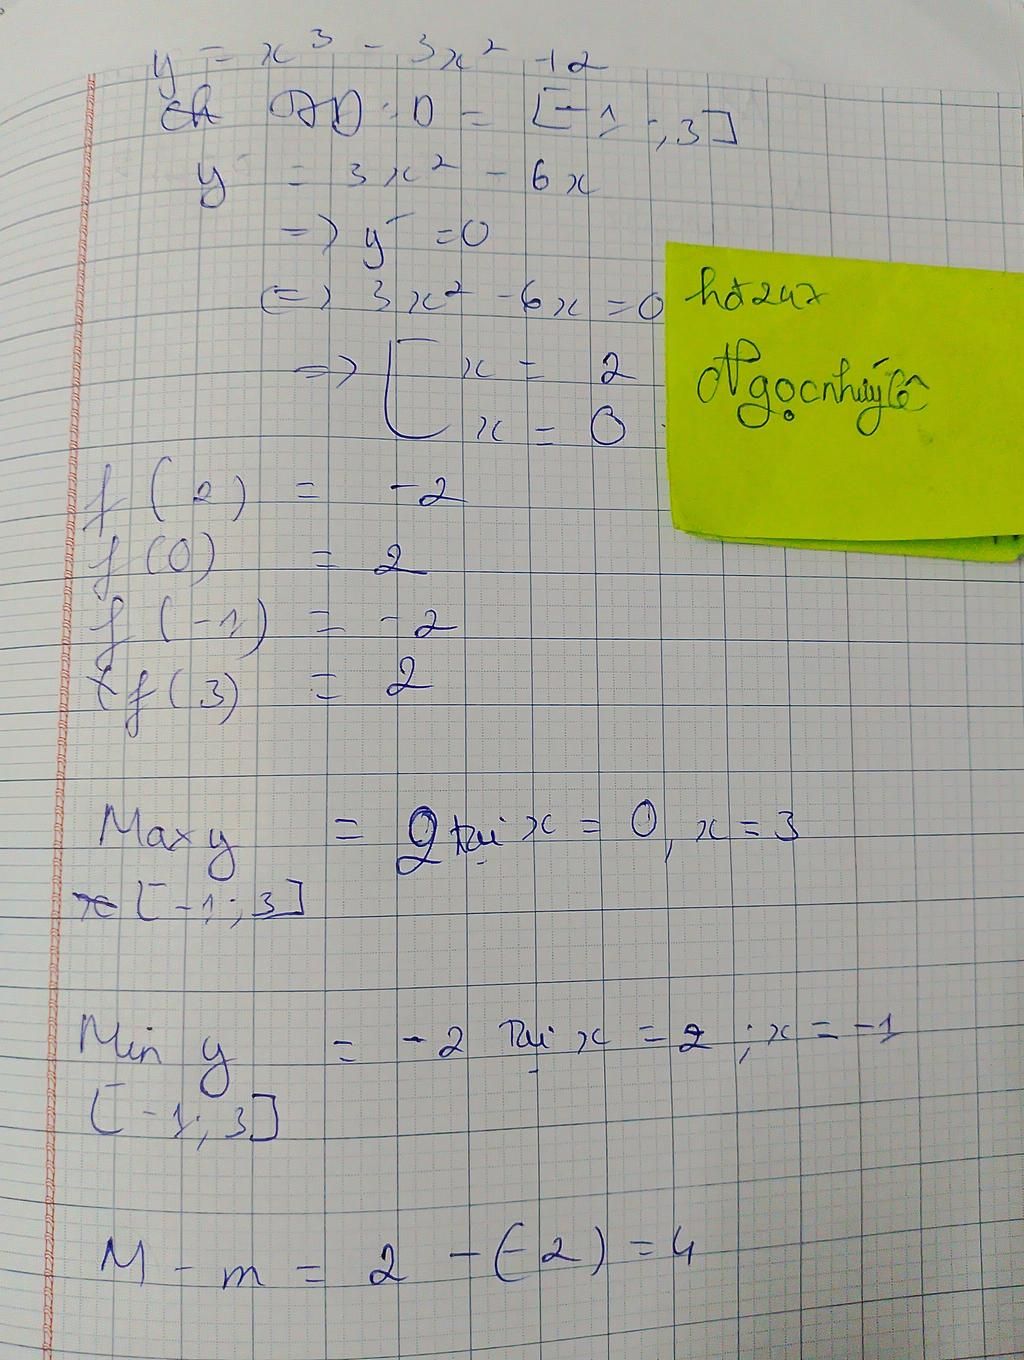 y = x³ - 3x² + 2
TXĐ: D = [-1; 3]
y' = 3x² - 6x
=> y' = 0
<=> 3x² - 6x = 0
=> [ x = 2
x = 0
hđ247
Ngọcnhưýlê
f(2) = -2
f(0) = 2
f(-1) = -2
f(3) = 2
Max y = 2 tại x = 0, x = 3
[-1; 3]
Min y = -2 Tại x = 2; x = -1
[-1; 3]
M - m = 2 - (-2) = 4